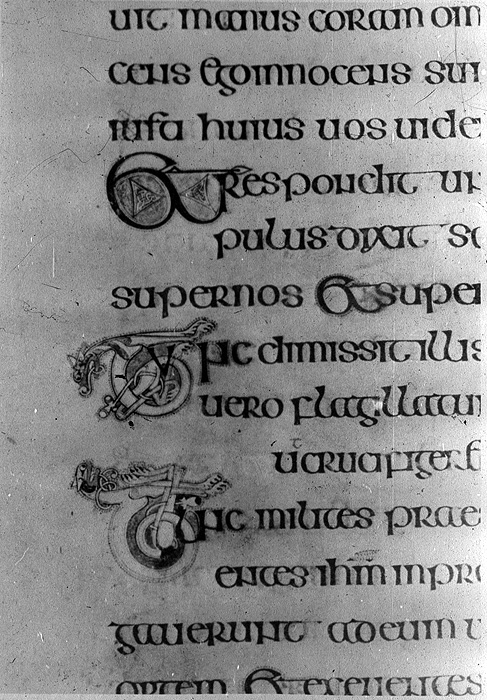 uit manus coram om
cens Ego innocens sum
iusta huius uos uide
Et respondit un
pulus dixit sa
supernos Et super
Tunc dimissit illis
uero flagillatum
ut crucifigeret
Tunc milites prae
entes ihm in pr
gauerunt ad eum u
ortem Et exeuentes